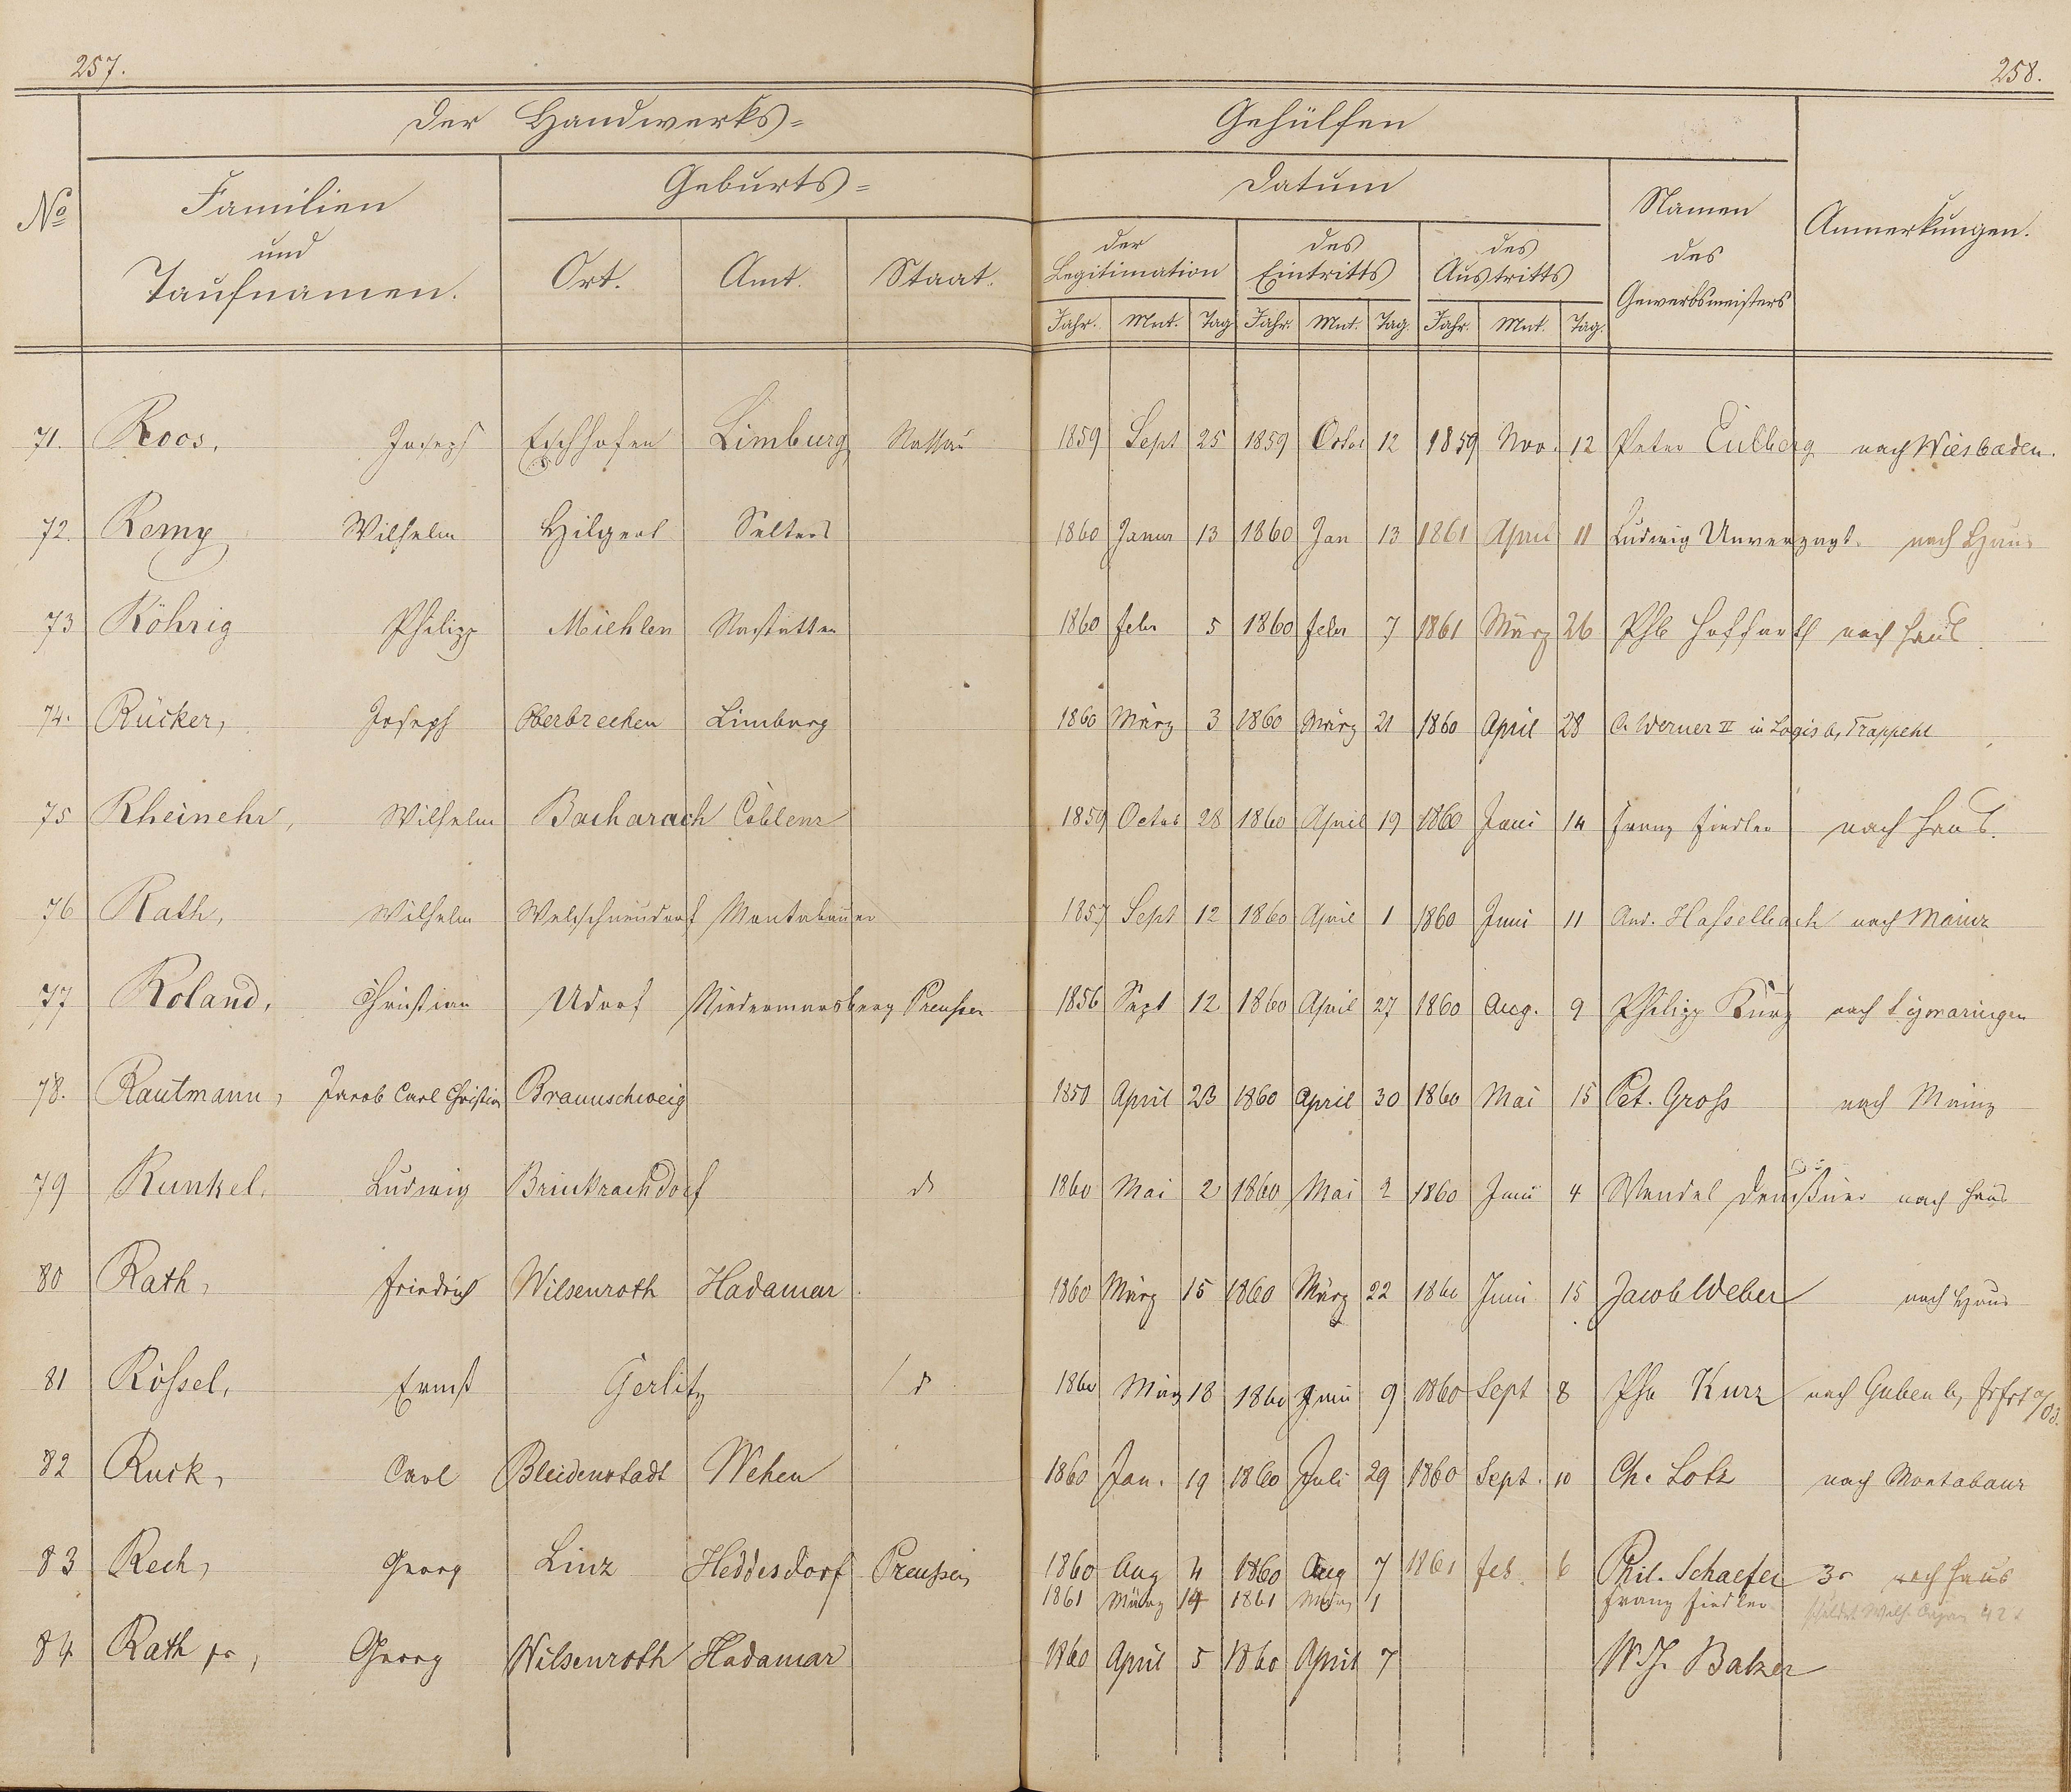 257.
258.
Der Handwerks=
Gehülfen
No
Familien
und
Taufnamen.
Geburts=
Ort.
Amt.
Staat.
Datum
der
Legitimation
des
Eintritts
des
Austritts
Jahr. Mnt. Tag Jahr. Mnt. Tag. Jahr. Mnt. Tag.
Namen
des
Gewerbsmeisters
Anmerkungen.
71. Roos, Joseph Eschhofen Limburg Nassau 1859 Sept 25 1859 Octor 12 1859 Nov. 12 Peter Eulberg nach Wiesbaden.
72. Remy Wilhelm Hilgert Selters 1860 Januar 13 1860 Jan 13 1861 April 11 Ludwig Unverzagt. nach Haus
73 Röhrig Philipp Miehlen Nastätten 1860 Febr 5 1860 Febr 7 1861 März 26 Phb Hoffarth nach Haus.
74. Rücker, Joseph Oberbrechen Limburg 1860 März 3 1860 März 21 1860 April 28 C. Werner II in Logis b,
75 Wilhelm Bacharach Coblenz 1859 Octob 28 1860 April 19 1860 Juni 14 Franz Fiedler nach Haus.
76 Rath, Wilhelm Welschneudorf Montabauer 1857 Sept 12 1860 April 1 1860 Juni 11 And. Hasselbach nach Mainz
77 Roland, Christian Udorf Niedermarsberg Preussen 1856 Sept 12 1860 April 27 1860 Aug. 9 Philipp Kurz nach Sigmaringen
78. Rautmann, Jacob Carl Christian Braunschweig 1850 April 23 1860 April 30 1860 Mai 15 Pet. Gross nach Mainz
79 Runkel, Ludwig d 1860 Mai 2 1860 Mai 2 1860 Juni 4 Wendel nach Haus
80 Rath, Friedrich Wilsenroth Hadamar 1860 März 15 1860 März 22 1860 Juni 15 Jacob Weber nach Haus
81 Rössel, Ernst Gerlitz d 1860 März 18 1860 Juni 9 1860 Sept 8 Phil Kurz nach Guben b, Frfrt a/Od.
82 Ruck, Carl Bleidenstadt Wehen 1860 Jan. 19 1860 Juli 29 1860 Sept. 10 Ch. Lotz nach Montabaur
83 Rech, Georg Linz Heddesdorf Preussen 1860 Aug 4 1860 Aug 7 1861 Feb. 6 Phil. Schaefer 3r nach Haus
1861 März 14 1861 März 1 Franz Fiedler
84 Rath, Georg Wilsenroth Hadamar 1860 April 5 1860 April 7 W. Balzer